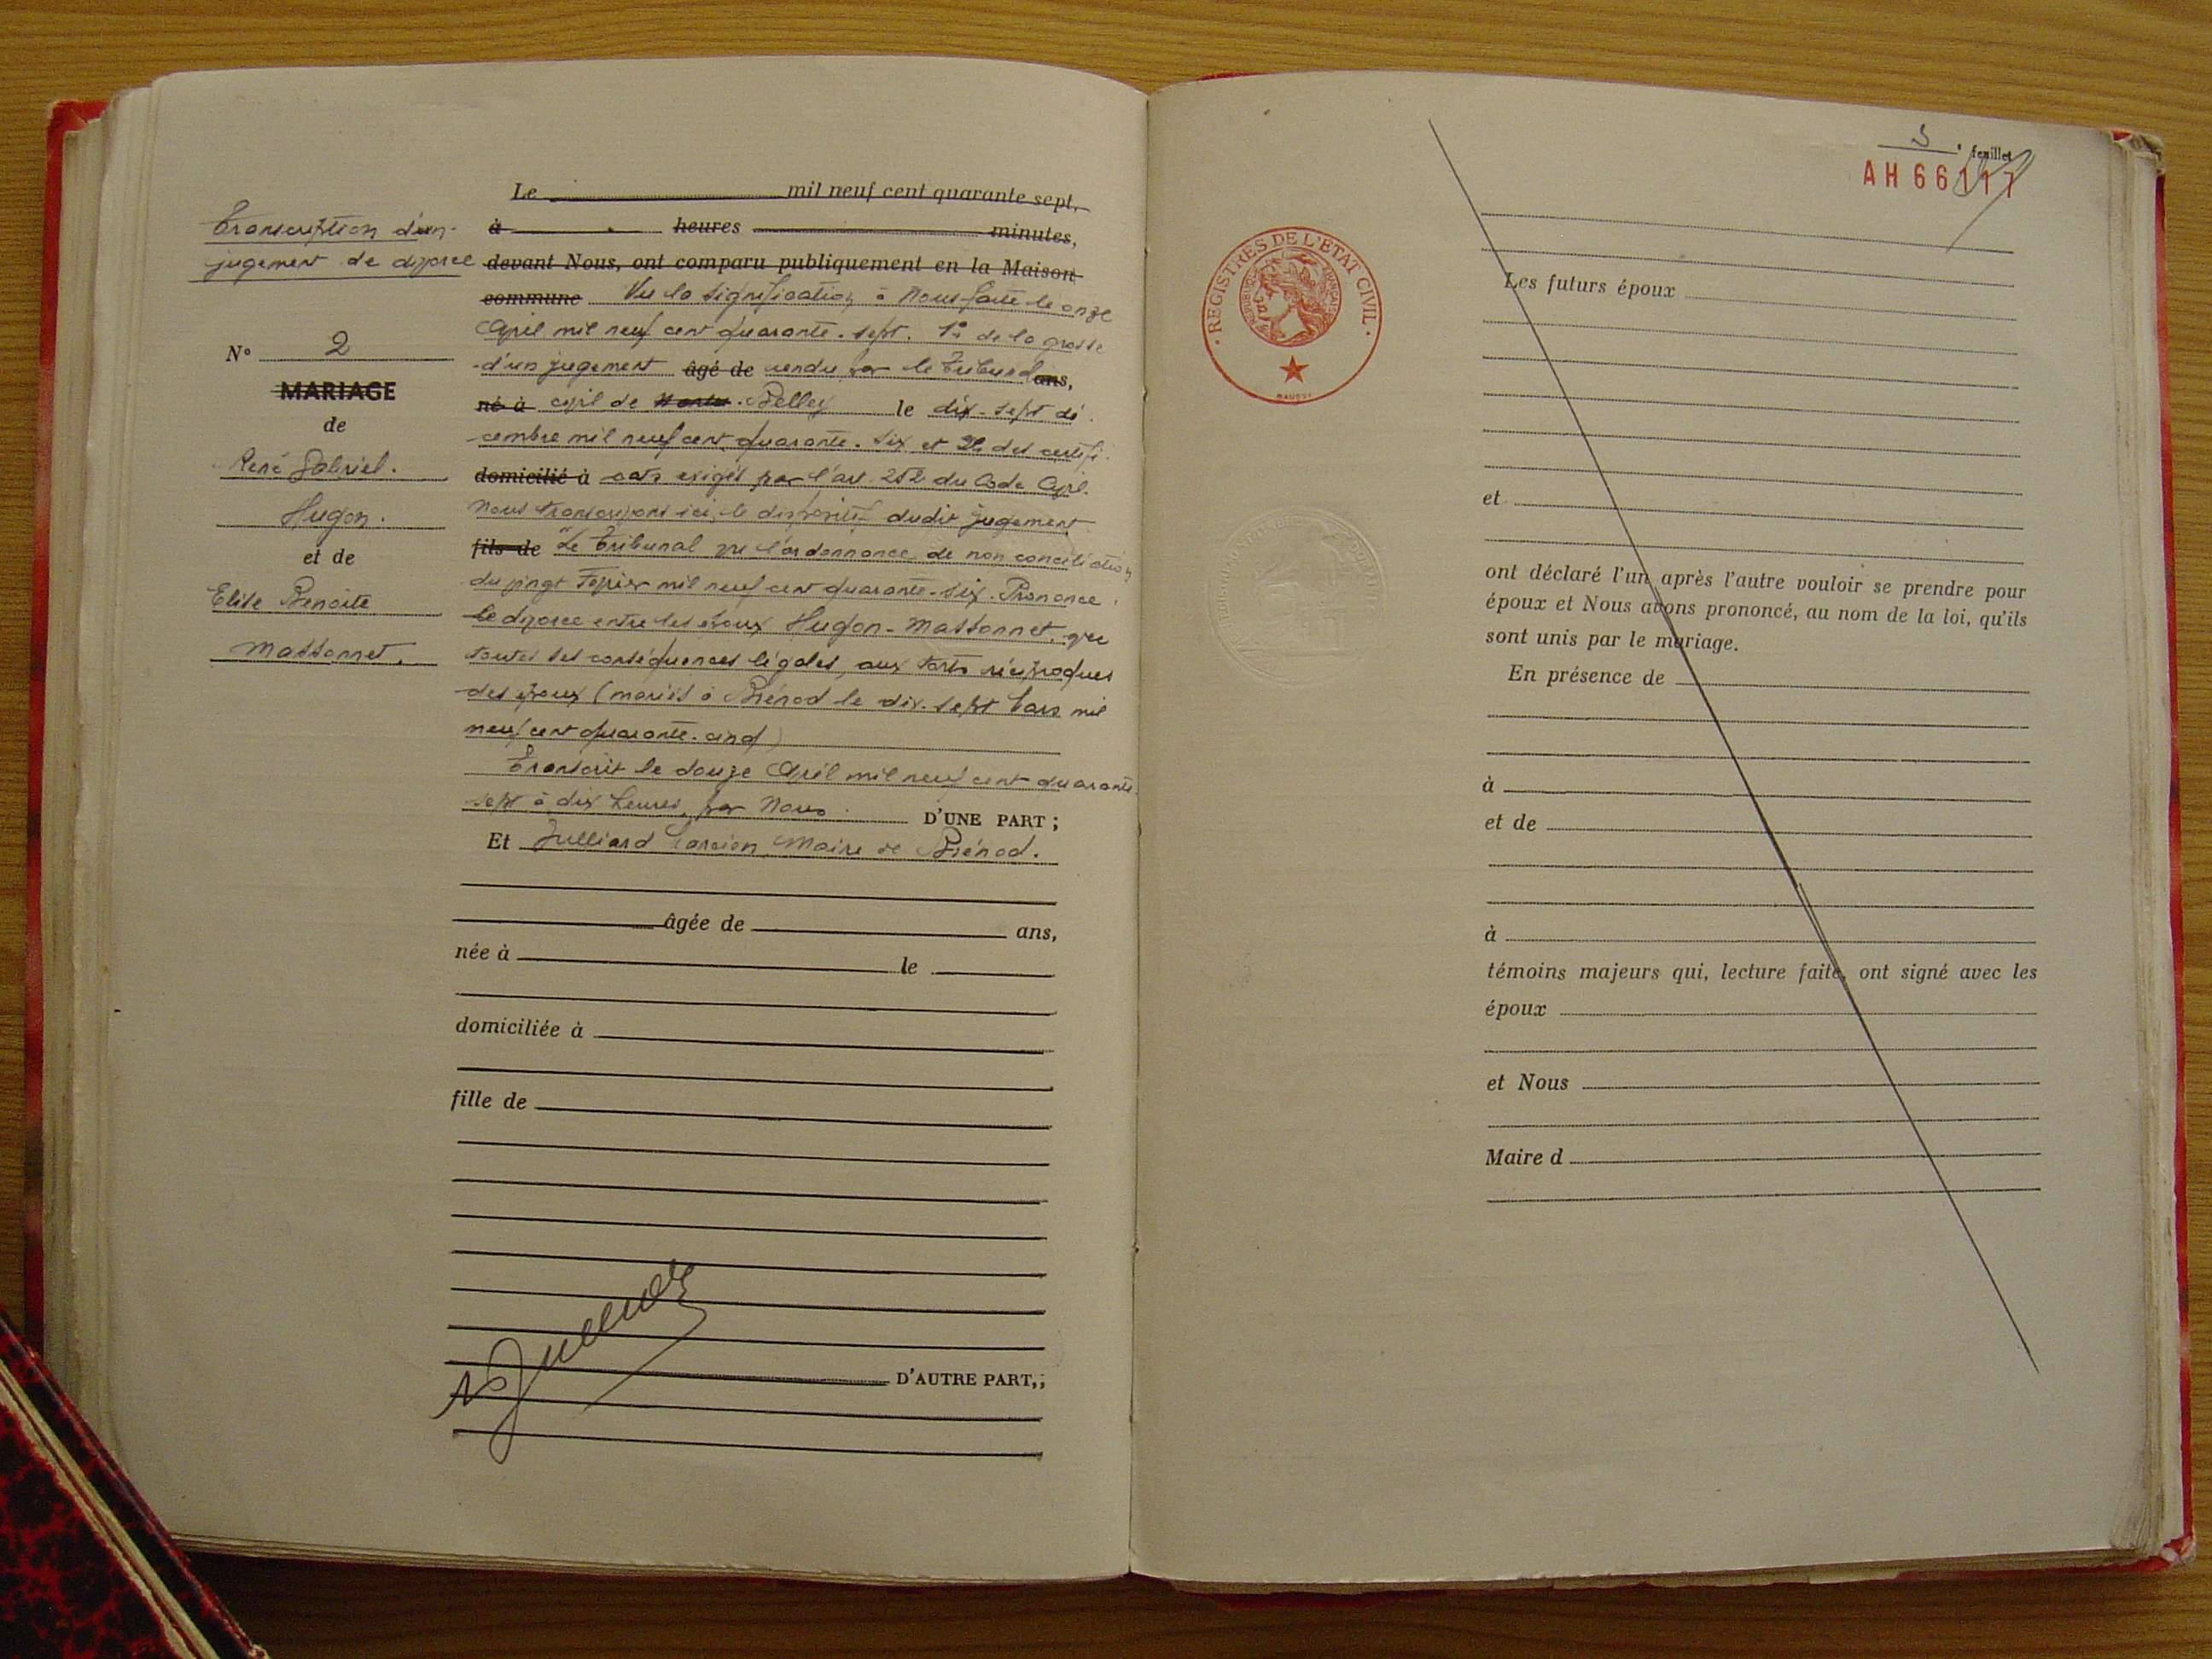 Le mil neuf cent quarante sept,
Transcription d'un
jugement de divorce
à heures minutes,
devant Nous, ont comparu publiquement en la Maison
commune Vu la signification à Nous faite le onze
Avril mil neuf cent quarante-sept. 1º de la grosse
N° 2
d'un jugement âgé de rendu par le Tribunal ans,
MARIAGE
né à civil de Belley le dix-sept dé
de
cembre mil neuf cent quarante-six et 2º des certifi
René Gabriel.
domicilié à cats exigés par l'art. 252 du Code Civil.
Hugon.
Nous transcrivons ici, le dispositif dudit jugement
et de
fils de "Le Tribunal vu l'ordonnance de non conciliation
Elise Benoite
du vingt Février mil neuf cent quarante-six. Prononce
Massonnet.
le divorce entre les époux Hugon-Massonnet, avec
toutes ses conséquences légales, aux torts réciproques
des époux (mariés à Brénod le dix-sept Mars mil
neuf cent quarante-cinq)
Transcrit le douze Avril mil neuf cent quarante
sept à dix heures, par Nous D'UNE PART ;
Et Julliard Maire de Brénod.
âgée de ans,
née à le
domiciliée à
fille de
D'AUTRE PART,;
5 e feuillet
AH 66117
REGISTRES DE L'ETAT CIVIL
REPUBLIQUE FRANÇAISE
Les futurs époux
et
ont déclaré l'un après l'autre vouloir se prendre pour
époux et Nous avons prononcé, au nom de la loi, qu'ils
sont unis par le mariage.
En présence de
à
et de
à
témoins majeurs qui, lecture faite, ont signé avec les
époux
et Nous
Maire d